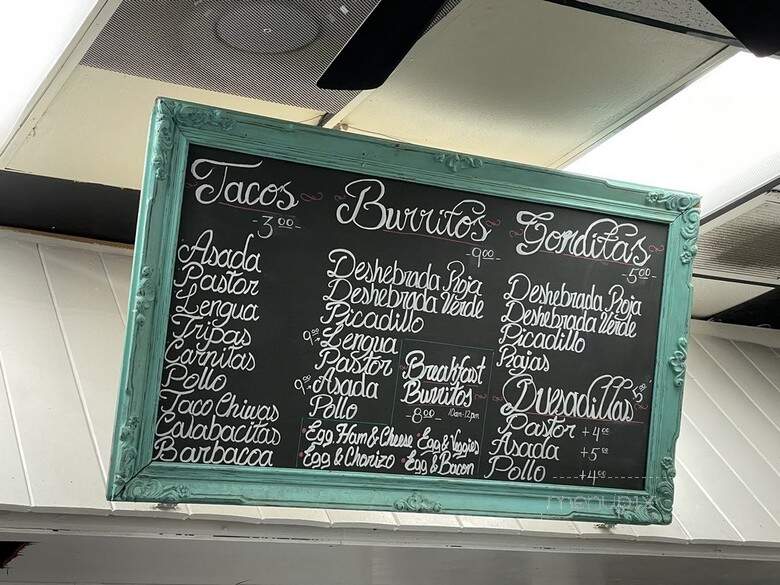 Tacos
-3.00-
Asada
Pastor
Lengua
Tripas
Carnitas
Pollo
Taco Chivas
Calabacitas
Barbacoa
Burritos
-9.00-
Deshebrada Roja
Deshebrada Verde
Picadillo
9.50→ Lengua
Pastor
9.50→ Asada
Pollo
Breakfast
Burritos
-8.00- 10am-12pm
Egg Ham & Cheese • Egg & Veggies
Egg & Chorizo • Egg & Bacon
Gorditas
-5.00-
Deshebrada Roja
Deshebrada Verde
Picadillo
Rajas
Quesadillas 5.00
Pastor +4.00
Asada +5.00
Pollo +4.00
menupix